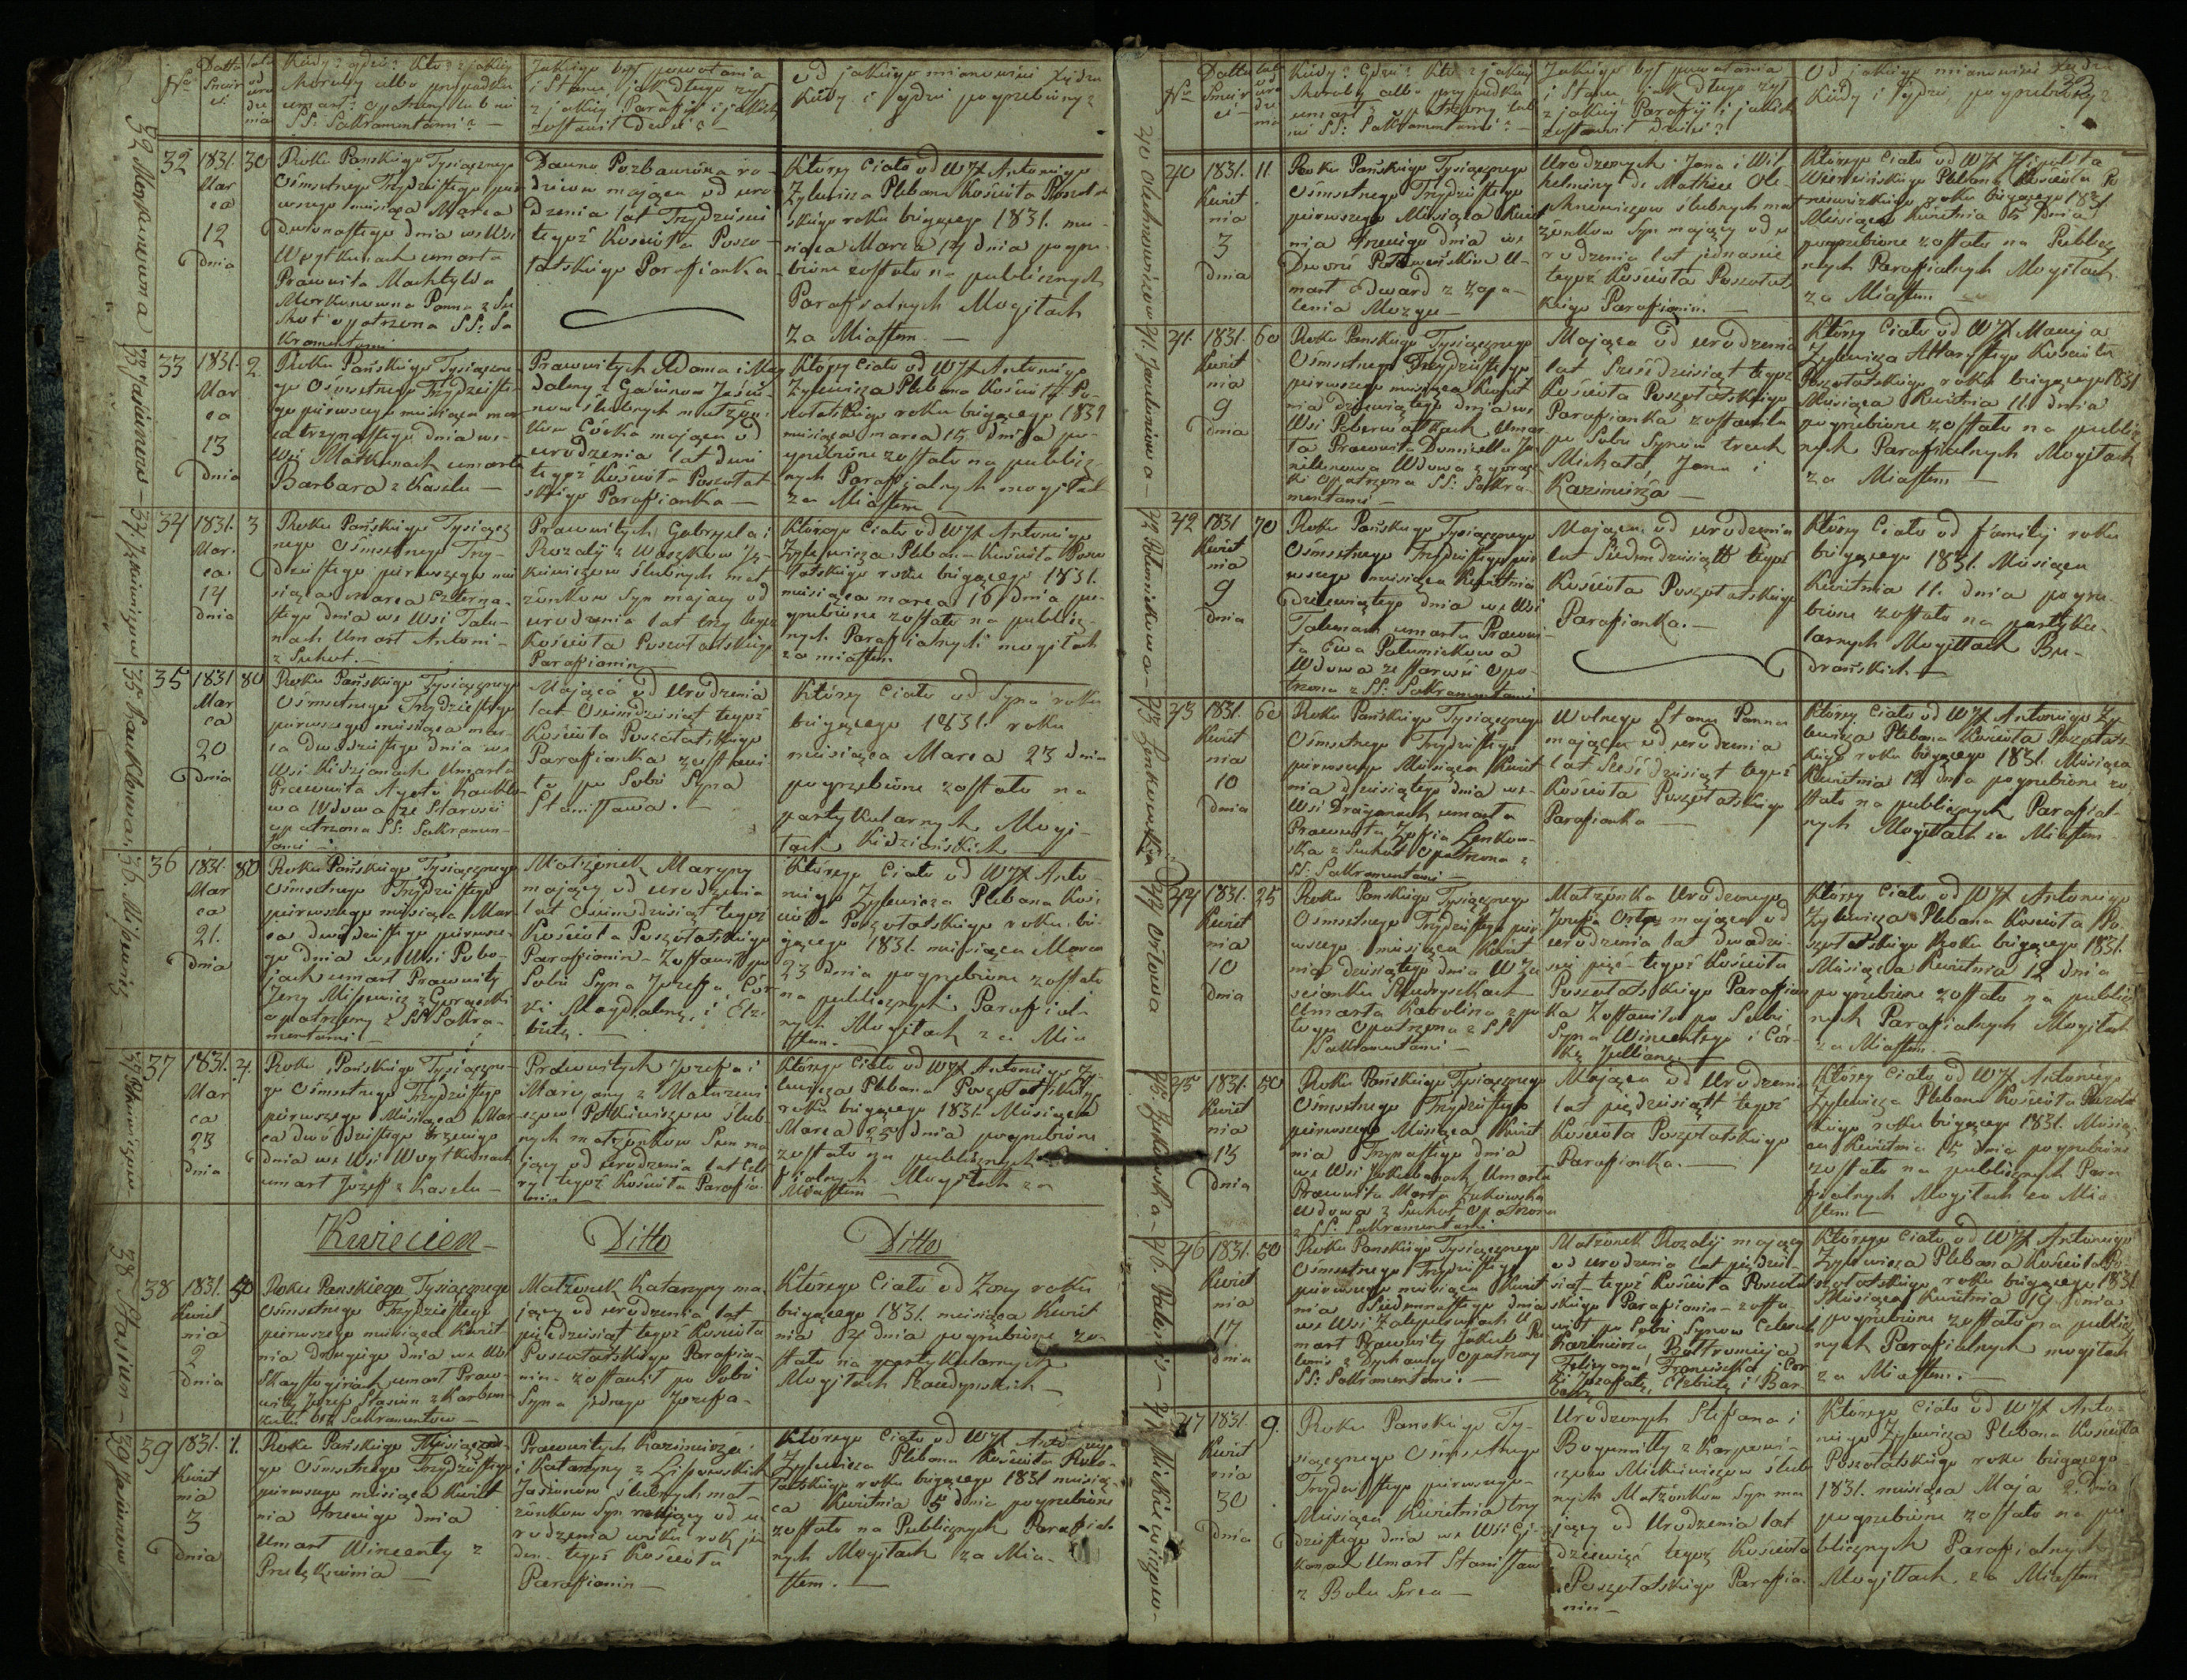 Nro
Datta Smierci
lata od urodzenia
Kiedy? gdzie? Kto? z jakiey
Choroby albo przypadku
umarł? opatrzony lub nie
SS: Sakramentami? —
Jakiego był powołania
i Stanu i jak długo żył
z jakiey Parafij i jakich
zostawił dzieci? —
od jakiego mianowicie Xiędza
Kiedy i gdzie pogrzebiony?
32 Morkunowna
32
1831.
Mar
ca
12
dnia
30
Roku Panskiego Tysiącznego
Ośmsetnego Trzydziestego pier
wszego miesiąca Marca
dwonastego dnia we Wsi
Woytkunach umarła
Prawowita Machtylda
Morkunowna Panna z Su
chot opatrzona SS: Sa
kramentami
Dawno Pozbawiona ro-
dziców mająca od uro
dzenia lat Trzydzieści
tegoż Kościoła Poszo-
łatskiego Parafianka
Ktorey Ciało od WJX Antoniego
Zylewicza Plebana Kościoła Poszołat
skiego roku bieżącego 1831. mie-
siąca Marca 14 dnia pogrze-
bione zostało na publicznych
Parafialnych Mogiłach
za Miastem. —
33 Jasiunowna
33
1831.
Mar
ca
13
dnia
2
Roku Pańskiego Tysiączne
go Ośmsetnego Trzydzieste-
go pierwszego miesiąca mar
ca trzynastego dnia we-
Wsi Markunach umarła
Barbara z Kaszlu —
Prawowitych Adama i Mag
daleny z Gasiunow Jasiu-
now ślubnych małżon-
kow Córka mająca od
urodzenia lat dwie
tegoż Kościoła Poszołat
skiego Parafianka —
Ktorey Ciało od WJX Antoniego
Zylewicza Plebana Kościoła Po-
szołatskiego roku bieżącego 1831
miesiąca marca 15 dnia po-
grzebione zostało na publicz-
nych Parafialnych mogiłach
za Miastem
34
1831.
Mar.
ca
14
dnia
3
Roku Pańskiego Tysiącz
nego Ośmsetnego Trzy-
dziestego pierwszego mie
siąca marca czterna-
stego dnia we Wsi Talu-
nach Umarł Antoni-
z Suchot. —
Prawowitych Gabryela i
Rozalij z Waszkow
ślubnych mał
żonkow Syn mający od
urodzenia lat trzy tegoż
Kościoła Poszołatskiego
Parafianin
Ktorego Ciało od WJX Antoniego
Zylewicza Pleban— Kościoła Poszo
łatskiego roku bieżącego 1831.
miesiąca marca 16 dnia po-
grzebione zostało na publicz-
nych Parafialnych mogiłach
za miastem
35
1831
Mar
ca
20
dnia
80
Roku Pańskiego Tysiącznego
Ośmsetnego Trzydziestego
pierwszego miesiąca mar-
ca dwudziestego dnia we
Wsi Kidzianach Umarła
Prawowita Agota
Wdowa ze Starości
opatrzona SS: Sakramen-
tami —
Mająca od Urodzenia
lat Osimdziesiąt tegoż
Kościoła Poszołatskiego
Parafianka zostawi-
ła po Sobie Syna
Stanisława. —
Ktorey Ciało od Syna roku
bieżącego 1831. roku
miesiąca Marca 23 dnia
pogrzebione zostało na
partykularnych Mogi-
łach Kidziańskich —
36. Misiewicz
36
1831.
Mar
ca
21.
dnia
80
Roku Pańskiego Tysiącznego
Ośmsetnego Trzydziestego
pierwszego miesiąca Mar
ca dwódziestego pierwsze-
go dnia we Wsi Pobo-
jach umarł Prawowity
Jerzy Misiewicz z Gorączki
opatrzony z SS Sakra-
mentami —
Małżonek Maryny
mający od urodzenia
lat Osimdziesiąt tegoż
Kościoła Poszołatskiego
Parafianin— Zostawił po
Sobie Syna Jozefa Cór
ki Magdalenę, i Elż-
bietę. —
Ktorego Ciało od WJX Anto-
niego Zylewicza Plebana Koś-
cioła Poszołatskiego roku bi-
żącego 1831. miesiąca Marca
23 dnia pogrzebione zostało
na publicznych Parafial-
nych Mogiłach za Mia
stem.
37
1831.
Mar
ca
23
dnia
4.
Roku Pańskiego Tysiączne-
go Ośmsetnego Trzydziestego
pierwszego Miesiąca Mar
ca dwódziestego trzeciego
dnia we Wsi Woytkunach
umarł Jozef z Kaszlu —
Prawowitych Jozefa i
Maryany z
ślub-
nych małżonkow Syn ma
jący od urodzenia lat czte
ry tegoż Kościoła Parafia-
nin —
Ktorego Ciało od WJX Antoniego Zy-
lewicza Plebana Poszołatskiego
roku bieżącego 1831. Miesiąca
Marca 25 dnia pogrzebione
zostało na publicznych
fialnych Mogiłach za
Miastem —
Kwiecien —
Ditto
Ditto
38 Stasiun —
38
1831.
Kwiet
nia
2
dnia
50
Roku Panskiego Tysiącznego
Ośmsetnego Trzydziestego
pierwszego miesiąca Kwiet
nia drugiego dnia we Wsi
umarł Prawo-
wity Jozef Stasiun z Karbun
kułu bez Sakramentow —
Małżonek Katarzyny ma
jący od urodzenia lat
pięćdziesiąt tegoż Kościoła
Poszołatskiego Parafia-
nin— zostawił po Sobie
Syna jednego Jozefa-
Ktorego Ciało od Zony roku
bieżącego 1831. miesiąca Kwiet
nia 4 dnia pogrzebione zo-
stało na partykularnych
Mogiłach
39 Jasiunow
39
1831.
Kwiet
nia
3
dnia
1.
Roku Pańskiego Tysiączne-
go Ośmsetnego Trzydziestego
pierwszego miesiąca Kwiet
nia trzeciego dnia
Umarł Wincenty z
Przelęknienia —
Prawowitych Kazimierza
i Katarzyny z Lisowskich
Jasiunow ślubnych mał-
żonkow Syn mający od u-
rodzenia wieku rok je-
den— tegoż Kościoła
Parafianin —
Ktorego Ciało od WJX Antoniego
Zylewicza Plebana Kościoła Poszo-
łatskiego roku bieżącego 1831 miesią-
ca Kwietnia 5 dnia pogrzebione
zostało na Publicznych Parafial
nych Mogiłach za Mia-
stem. —
Nro
Datta Smierci
lata urodzenia
Kiedy? Gdzie? Kto z jakiey
Choroby albo przypadku
umarł? opatrzony lub
nie SS: Sakramentami? —
Jakiego był powołania
i Stanu jak długo żył
z jakiey Parafij i jakich
zostawił dzieci?
Od jakiego mianowicie Xiędza
Kiedy i gdzie pogrzebiony?
33
40 Olechnowiczow
40
1831.
Kwiet
nia
3
dnia
11.
Roku Pańskiego Tysiącznego
Ośmsetnego Trzydziestego
pierwszego Miesiąca Kwiet
nia trzeciego dnia we
Dworze U-
marł Edward z Zapa-
lenia Mozgu —
Urodzonych Jana i Wil
helminy de Mathiew Ole-
chnowiczow ślubnych mał
żonkow Syn mający od u
rodzenia lat jednaście
tegoż Kościoła Poszołat
skiego Parafianin. —
Ktorego Ciało od WJX Hipolita
Plebana Kościoła Po
niewiezkiego roku bieżącego 1831
Miesiąca Kwietnia 5 dnia
pogrzebione zostało na Publicz
nych Parafialnych Mogiłach
za Miastem —
41.
1831.
Kwiet
nia
9
dnia
60
Roku Panskiego Tysiącznego
Ośmsetnego Trzydziestego
pierwszego miesiąca Kwiet
nia dziewiątego dnia we
Wsi Umar
ła Prawowita Domicella Ja
Wdowa z gorącz
ki opatrzona SS: Sakra-
mentami —
Mająca od urodzenia
lat Sześćdziesiąt tegoż
Kościoła Poszołatskiego
Parafianka zostawiła
po Sobie Synow trzech
Michała, Jana i
Kazimierza —
Ktorey Ciało od WJX Macieja
Zylewicza Altarysty Kościoła
Poszołatskiego roku bieżącego 1831
Miesiąca Kwietnia 11. dnia
pogrzebione zostało na publicz
nych Parafialnych Mogiłach
za Miastem —
42 Połumickowa —
42
1831
Kwiet
nia
9
dnia
70
Roku Pańskiego Tysiącznego
Ośmsetnego Trzydziestego pier
wszego miesiąca Kwietnia
dziewiątego dnia we Wsi
Talunach umarła Prawowi
ta Ewa Połumickowa
Wdowa ze starości Opa-
trzona z SS: Sakramentami
Mająca od urodzenia
lat Siedmdziesiąt tegoż
Kościoła Poszołatskiego
Parafianka. —
Ktorey Ciało od familij roku
bieżącego 1831. Miesiąca
Kwietnia 11. dnia pogrze-
bione zostało na partyku-
larnych Mogiłłach Bu-
drańskich —
43 Zenkowska
43
1831.
Kwiet
nia
10
dnia
60
Roku Pańskiego Tysiącznego
Ośmsetnego Trzydziestego
pierwszego Miesiąca Kwiet
nia dziesiątego dnia we-
Wsi Draganach umarła
Prawowita Zofia Zenkow-
ska z Suchot Opatrzona z
SS: Sakramentami —
Wolnego Stanu Panna
mająca od urodzenia
lat Sześćdziesiąt tegoż
Kościoła Poszołatskiego
Parafianka —
Ktorey Ciało od WJX Antoniego Zy-
lewicza Plebana Kościoła Poszołats-
kiego roku bieżącego 1831. Miesiąca
Kwietnia 12 dnia pogrzebione zo-
stało na publicznych Parafial-
nych Mogiłłach za Miastem.
44 Orłowa
44
1831.
Kwiet
nia
10
dnia
25
Roku Panskiego Tysiącznego
Ośmsetnego Trzydziestego pier
wszego miesiąca Kwiet
nia dziesiątego dnia W Za
scianku
Umarła Karolina z po
łogu Opatrzona z SS
Sakramentami —
Małżonka Urodzonego
Jozefa Orła mająca od
urodzenia lat dwadzie-
ści pięć— tegoż Kościoła
Poszołatskiego Parafian
ka Zostawiła po Sobie
Syna Wincentego i Cór-
kę Julliannę
Ktorey Ciało od WJX Antoniego
Zylewicza Plebana Kościoła Po-
szołatskiego Roku bieżącego 1831.
Miesiąca Kwietnia 12 dnia
pogrzebione zostało na publicz
nych Parafialnych Mogiłach
za Miastem. —
45. Żukowska —
45
1831.
Kwiet
nia
13
dnia
50
Roku Pańskiego Tysiącznego
Ośmsetnego Trzydziestego
pierwszego Miesiąca Kwiet
nia Trzynastego dnia
we Wsi Jakubanach Umarła
Prawowita Marta Żukowska
wdowa z Suchot Opatrzona
z SS: Sakramentami
Mająca od Urodzenia
lat pięćdziesiąt tegoż
Kościoła Poszołatskiego
Parafianka. —
Ktorey Ciało od WJX Antoniego
Zylewicza Plebana Kościoła Poszołat
skiego roku bieżącego 1831. Miesią-
ca Kwietnia 15 dnia pogrzebione
zostało na publicznych Para
fialnych Mogiłach za Mia
stem —
46
1831.
Kwiet
nia
17
dnia
50
Roku Panskiego Tysiącznego
Ośmsetnego Trzydziestego
pierwszego miesiąca Kwiet
nia Siedmnastego dnia
we Wsi U
marł Prawowity Jakub
z Dychawicy Opatrzony
SS: Sakramentami. —
Małżonek Rozalij mający
od urodzenia lat pięćdzie-
siąt tegoż Kościoła Poszołat
skiego Parafianin— zosta-
wił po Sobie Synow
Kazimierza Bałtromieja
Felicyana, Franciszka i Cor
ki Jozafatę, Elzbietę i Bar-
barę
Ktorego Ciało od WJX Antoniego
Zylewicza Plebana Kościoła Po-
szołatskiego roku bieżącego 1831.
Miesiąca Kwietnia 19 dnia
pogrzebione zostało na publicz
nych Parafialnych mogiłach
za Miastem. —
47 Mickiewiczow —
47
1831.
Kwiet
nia
30
dnia
9.
Roku Panskiego Ty-
siącznego Ośmsetnego
Trzydziestego pierwszego—
Miesiąca Kwietnia trzy
dziestego dnia we Wsi
Umarł Stanisław
z Bolu Serca —
Urodzonych Stefana i
Bogumiłły z Karpowi-
czow Mickiewiczow ślub
nych Małżonkow Syn ma
jący od Urodzenia lat
dziewięć tegoż Kościoła
Poszołatskiego Parafia-
nin —
Ktorego Ciało od WJX Anto-
niego Zylewicza Plebana Kościoła
Poszołatskiego roku bieżącego—
1831. miesiąca Maja 2. dnia
pogrzebione zostało na pu
blicznych Parafialnych
Mogiłłach za Miastem